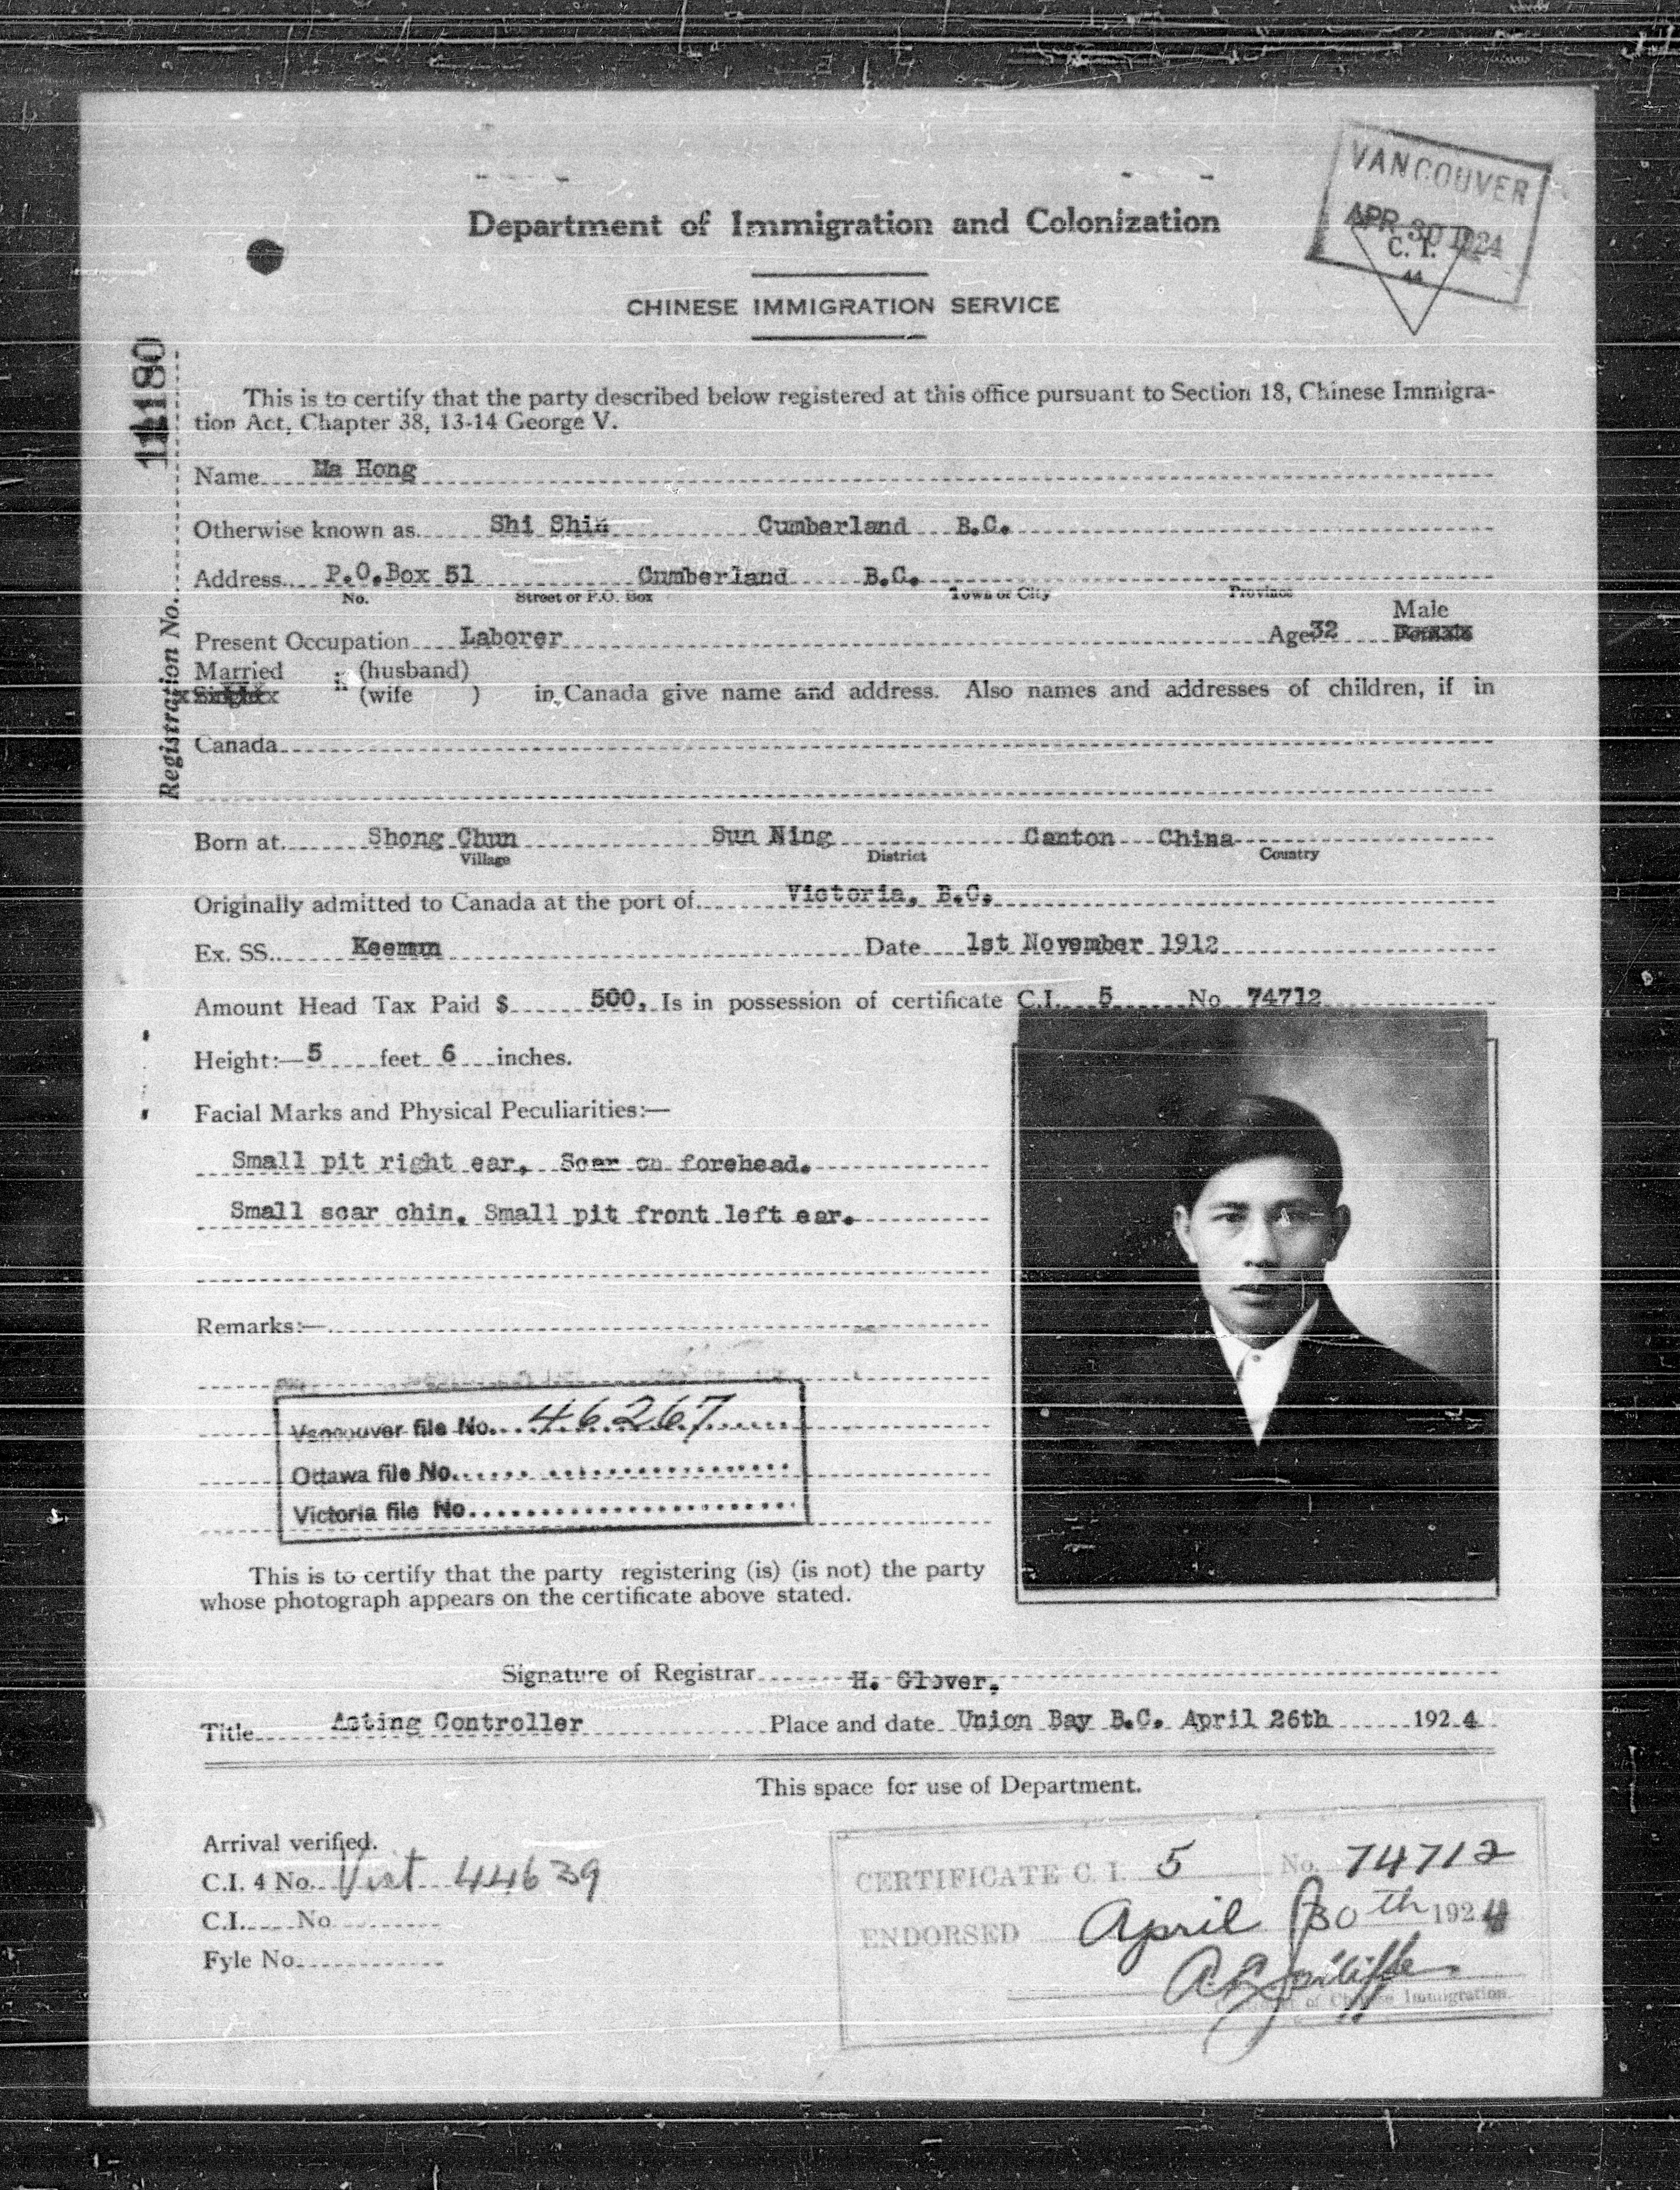 VANCOUVER
APR 30 1924
C. I.
44
Department of Immigration and Colonization
CHINESE IMMIGRATION SERVICE
Registration No. 11180
This is to certify that the party described below registered at this office pursuant to Section 18, Chinese Immigra-
tion Act, Chapter 38, 13-14 George V.
Name Ma Hong
Otherwise known as Shi Shin Cumberland B.C.
Address P.O.Box 51 Cumberland B.C.
No. Street or P.O. Box Town or City Province
Male
Present Occupation Laborer Age 32 Female
Married if (husband)
Single (wife ) in Canada give name and address. Also names and addresses of children, if in
Canada
Born at Shong Chun Sun Ning Canton China
Village District Country
Originally admitted to Canada at the port of Victoria, B.C.
Ex. SS. Keemun Date 1st November 1912
Amount Head Tax Paid $ 500. Is in possession of certificate C.I. 5 No 74712
Height:— 5 feet 6 inches.
Facial Marks and Physical Peculiarities:—
Small pit right ear, Scar on forehead.
Small scar chin, Small pit front left ear.
Remarks:—
Vancouver file No. 46267
Ottawa file No.
Victoria file No.
This is to certify that the party registering (is) (is not) the party
whose photograph appears on the certificate above stated.
Signature of Registrar H. Glover.
Title Acting Controller Place and date Union Bay B.C. April 26th 1924
This space for use of Department.
Arrival verified.
C.I. 4 No. Vict 44639
C.I. No
Fyle No.
CERTIFICATE C. I. 5 No. 74712
ENDORSED April 30th 1924
of Chinese Immigration